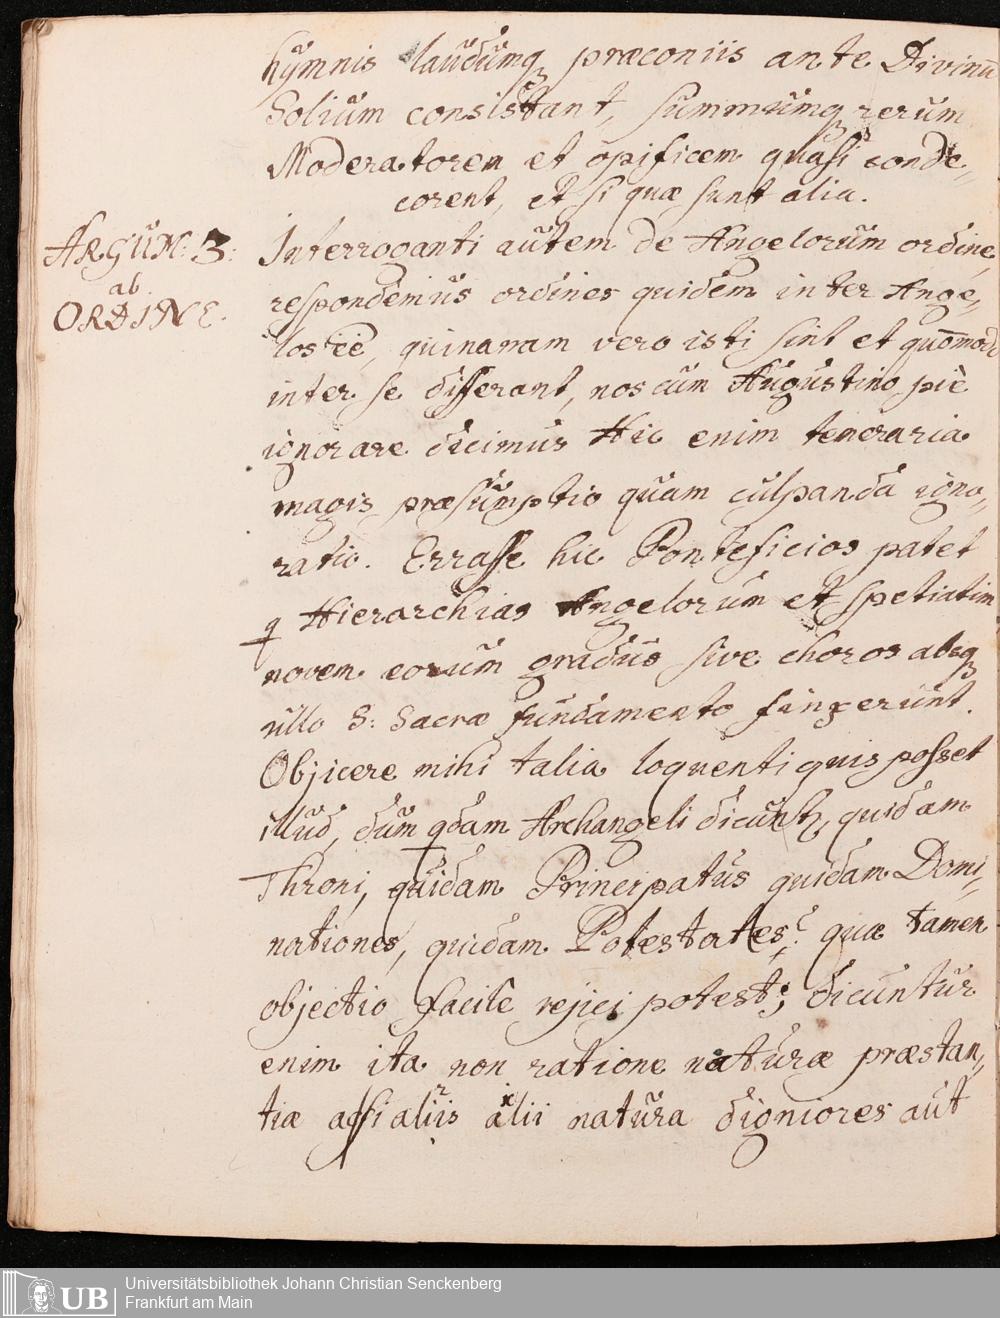 hymnis laudumq præconiis ante Divinū
Solium consistant, summumq rerum
Moderatorem et opificem quasi conde„
corent, et si quæ sunt alia.
ARGUM: 3:
ab
ORDINE.
Interroganti autem de Angelorum ordine,
respondemus ordines quidem inter Ange„
los eē, quinanam vero isti sint et quōmodo
inter se differant, nos cum Augustino piè
ignorare dicimus Hic enim temeraria
magis præsumptio quam culpanda igno„
ratio. Errasse hic Pontificios patet
q Hierarchias Angelorum et spetiatim
novem eorum gradus sive choros absq
ullo S: Sacræ fundamento finxerunt.
Objicere mihi talia loquenti quis posset
illud, dum qdam Archangeli dicunt, quidam
Throni, quidam Principatus quidam Domi„
nationes, quidam Potestates? quæ tamen
objectio facile rejici potest; dicuntur
enim ita non ratione naturæ præstan„
tiæ acsi aliis alii natura digniores aut
UB
Universitätsbibliothek Johann Christian Senckenberg
Frankfurt am Main